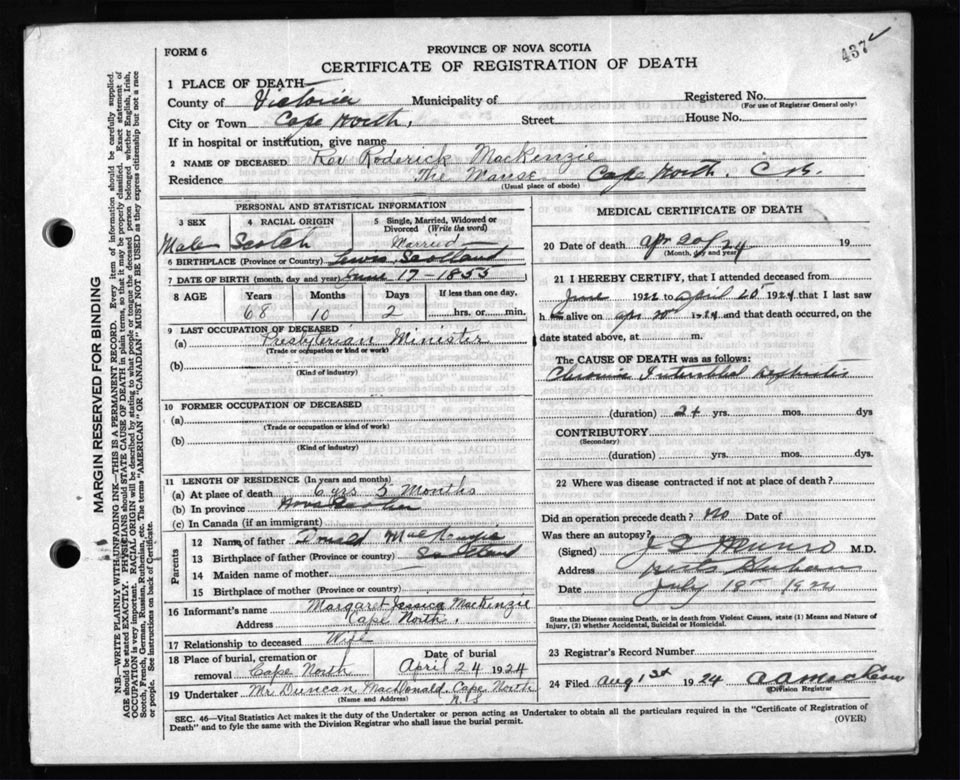 FORM 6
PROVINCE OF NOVA SCOTIA
437
CERTIFICATE OF REGISTRATION OF DEATH
1 PLACE OF DEATH
County of Victoria Municipality of Registered No.
(For use of Registrar General only)
City or Town Cape North. Street House No.
If in hospital or institution, give name
2 NAME OF DECEASED Rev Roderick MacKenzie
Residence The Manse Cape North. C.B.
(Usual place of abode)
PERSONAL AND STATISTICAL INFORMATION
3 SEX 4 RACIAL ORIGIN 5 Single, Married, Widowed or Divorced (Write the word)
Male Scotch Married
6 BIRTHPLACE (Province or Country) Lewis, Scotland
7 DATE OF BIRTH (month, day and year) June 17-1855
8 AGE Years Months Days If less than one day,
68 10 2 hrs. or min.
9 LAST OCCUPATION OF DECEASED
(a) Presbyterian Minister
(Trade or occupation or kind of work)
(b)
(Kind of industry)
10 FORMER OCCUPATION OF DECEASED
(a)
(Trade or occupation or kind of work)
(b)
(Kind of industry)
11 LENGTH OF RESIDENCE (In years and months)
(a) At place of death 6 yrs 5 Months
(b) In province Nova Scotia
(c) In Canada (if an immigrant)
Parents
12 Name of father Donald MacKenzie
13 Birthplace of father (Province or country) Scotland
14 Maiden name of mother
15 Birthplace of mother (Province or country)
16 Informant's name Margaret Jessica MacKenzie
Address Cape North.
17 Relationship to deceased Wife
18 Place of burial, cremation or removal Cape North Date of burial April 24 1924
19 Undertaker Mr Duncan MacDonald Cape North
(Name and Address) N.S
MEDICAL CERTIFICATE OF DEATH
20 Date of death Apr 20/24 19
(Month, day and year)
21 I HEREBY CERTIFY, that I attended deceased from
June 1922 to April 20 1924 that I last saw
h alive on apr 20 1924 and that death occurred, on
date stated above, at m.
The CAUSE OF DEATH was as follows:
Chronic Interstitial Nephritis
(duration) 2+ yrs. mos. dys
CONTRIBUTORY
(Secondary)
(duration) yrs. mos. dys.
22 Where was disease contracted if not at place of death?
Did an operation precede death? No Date of
Was there an autopsy?
(Signed) Munro M.D.
Address
Date July 18 1924
State the Disease causing Death, or in death from Violent Causes, state (1) Means and Nature of Injury, (2) whether Accidental, Suicidal or Homicidal.
23 Registrar's Record Number
24 Filed Aug 1st 1924
Division Registrar
SEC. 46—Vital Statistics Act makes it the duty of the Undertaker or person acting as Undertaker to obtain all the particulars required in the "Certificate of Registration of
Death" and to fyle the same with the Division Registrar who shall issue the burial permit.
(OVER)
MARGIN RESERVED FOR BINDING
N.B.—WRITE PLAINLY WITH UNFADING INK—THIS IS A PERMANENT RECORD. Every item of information should be carefully supplied.
AGE should be stated EXACTLY. PHYSICIANS should STATE CAUSE OF DEATH in plain terms, so that it may be properly classified. Exact statement of
OCCUPATION is very important. RACIAL ORIGIN will be described by stating to what people or tongue the deceased person belonged whether English, Irish,
Scotch, French, German, Russian, Ruthenian, etc. The terms "AMERICAN" OR "CANADIAN" MUST NOT BE USED as they express citizenship but not a race
or people. See Instructions on back of Certificate.